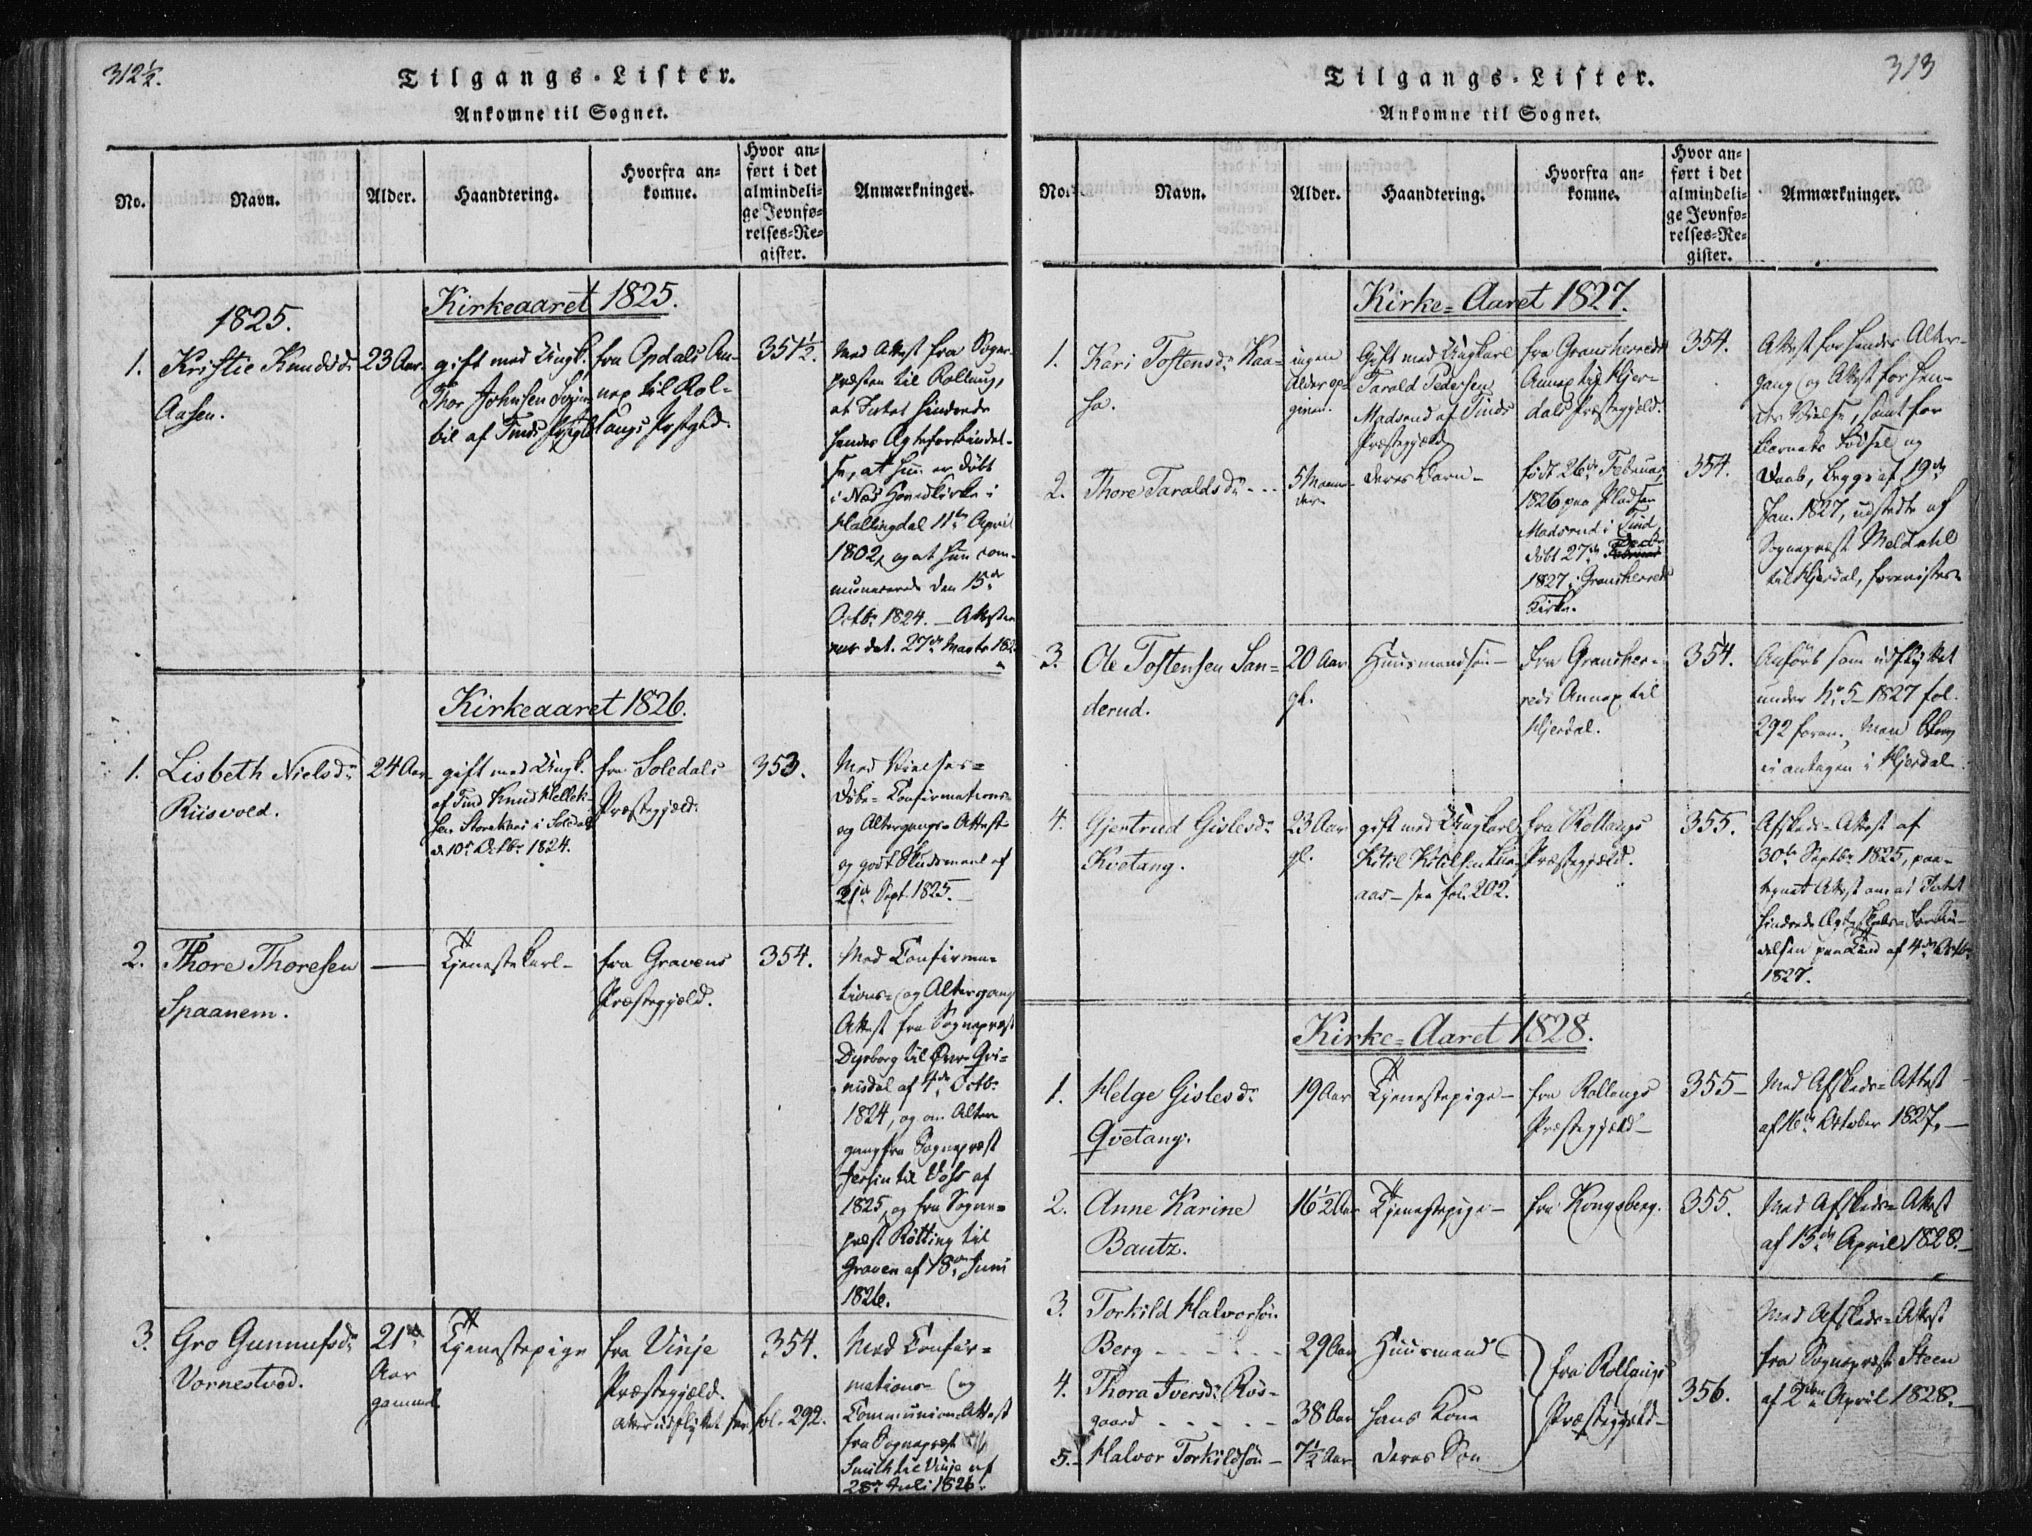 312½.
Tilgangs-Lister.
Ankomne til Sognet.
No.
Navn.
Alder.
Haandtering.
Hvorfra an=
komne.
Hvor an=
ført i det
almindeli=
ge Jevnfø=
relses=Re=
gister.
Anmærkninger.
Kirkeaaret 1825.
1825.
1.
Kristie Knudsd:
Aasen.
23 Aar.
gift med Ungk.
Thor Johnsen
til af Tinds
fra Opdals An-
nex til Rol-
laugs
351½.
Med Attest fra Sogne-
præsten til Rollaug,
at Intet hindrede
hendes Ægteforbindel-
se, at hun er døbt
i Næs Hovedkirke i
Hallingdal 11te April
1802, og at hun com-
municerede den 15de
Octb: 1824. — Attesten
var dat. 27de Marts
Kirkeaaret 1826.
1.
Lisbeth Nielsd:
Riisvold.
24 Aar
gift med Ungk.
af Tind Knud Hellek-
sen i
d. 10de Octb: 1824.
fra
Præstegjæld.
353.
Med Vielses=
Døbe= Confirmations=
og Altergangs= Attest
og godt Skudsmaal af
21de Sept. 1825.
2.
Thore Thoresen
Spaanem.
—
Tjenestekarl
fra Gravens
Præstegjæld.
354.
Med Confirma-
tions= og Altergangs
Attest fra Sognepræst
Dyrborg til Øvre Qvi-
nisdal af 4de Octb:
1824, og om Alter
gang fra Sognepræst
Jersin til Voss af
1825, og fra Sogne=
præst til
Graven af 18de Juni
1826.
3.
Gro Gunnufsd:
Vornestvæd.
21
Aar
gammel
Tjenestepige
fra Vinje
Præstegjæld.
354.
atter udflyttet see fol. 292.
Med Confir=
mations= og
Communions Attest
fra Sognepræst
Smith til Vinje af
28de Juli 1826.
313
Tilgangs-Lister.
Ankomne til Sognet.
No.
Navn.
Alder.
Haandtering.
Hvorfra an=
komne.
Hvor an=
ført i det
almindeli=
ge Jevnfø=
relses=Re=
gister.
Anmærkninger.
Kirke=Aaret 1827.
1.
Kari Tostensd: Kaa-
sa.
ingen
Alder op-
given.
Gift med Ungkarl
Tarald Pedersen
Madsrud af Tinds
Præstegjæld
fra Gransherreds
Annex til Hjer-
dals Præstegjæld.
354.
Attest for hendes Alter-
gang og Attest for hen-
des Vielse, samt for
Barnets Fødsel og
Daab, begge af 19de
Jan. 1827, udstedte af
Sognepræst Meldahl
til Hjerdal, forevistes.
2.
Thore Taraldsd: - - -
5 Maane-
der.
deres Barn
født 26de Februar
1826 paa Pladsen
Madsrud i Tind,
døbt 27de
1827 i Gransherreds
Kirke.
354.
3.
Ole Tostensen San=
derud.
20 Aar
gl.
Huusmandssøn
fra Gransher-
reds Annex til
Hjerdal.
354.
Anført som udflyttet
under No 5 - 1827 fol.
292 foran. Men blev
ei antagen i Hjerdal.
4.
Gjertrud Gislesd:
Kvetang.
23 Aar
gl.
gift med Ungkarl
Kittil Kittilsen
aas — see fol. 202.
fra Rollaugs
Præstegjæld.
355.
Afskeds= Attest af
30te Septb: 1825, paa-
tegnet Attest om at Intet
hindrede Ægteskabs= Forbin-
delsen paa af 4de Octb:
1827.
Kirke=Aaret 1828.
1.
Helge Gislesd:
Qvetang.
19 Aar
Tjenestepige —
fra Rollaugs
Præstegjæld —
355 —
Med Afskeds= Attest
af 16de Oktober 1827. —
2.
Anne Karine
Bautz.
16½ Aar
Tjenestepige —
fra Kongsberg.
355.
Med Afskeds= Attest
af 15de April 1828. —
3.
Torkild Halvorsøn
Berg - - - - - -
29 Aar
Huusmand
4.
Thora Iversd: Ros=
gaard - - - - -
38 Aar
hans Kone
5.
Halvor Torkildsøn —
7½ Aar
deres Søn
fra Rollaugs
Præstegjæld —
356.
Med Afskeds= Attest
fra Sognepræst Steen
af 2den April 1828. —